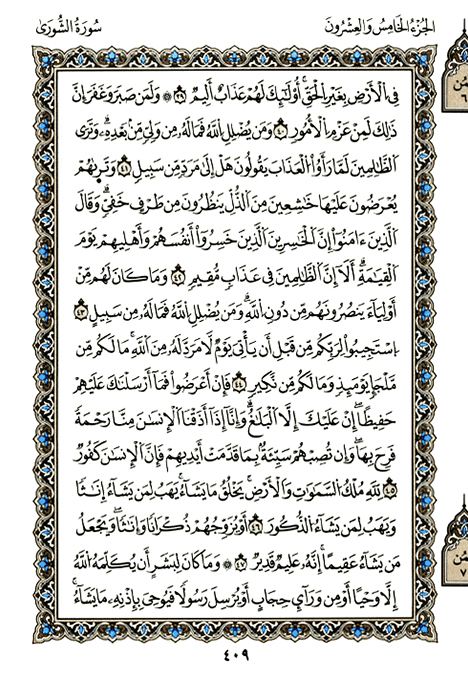 الجُزْءُ الخَامِسُ وَالعِشْرُونَ
سُورَةُ الشُّورَىٰ
فِي الْأَرْضِ بِغَيْرِ الْحَقِّ أُوْلَٰٓئِكَ لَهُمْ عَذَابٌ أَلِيمٌ ٣٩ ۞ وَلَمَن صَبَرَ وَغَفَرَ إِنَّ
ذَٰلِكَ لَمِنْ عَزْمِ الْأُمُورِ ٤٠ وَمَن يُضْلِلِ اللَّهُ فَمَا لَهُۥ مِن وَلِيٍّ مِّنۢ بَعْدِهِۦ وَتَرَى
الظَّٰلِمِينَ لَمَّا رَأَوُاْ الْعَذَابَ يَقُولُونَ هَلْ إِلَىٰ مَرَدٍّ مِّن سَبِيلٍ ٤١ وَتَرَىٰهُمْ
يُعْرَضُونَ عَلَيْهَا خَٰشِعِينَ مِنَ الذُّلِّ يَنظُرُونَ مِن طَرْفٍ خَفِيٍّ وَقَالَ
الَّذِينَ ءَامَنُوٓاْ إِنَّ الْخَٰسِرِينَ الَّذِينَ خَسِرُوٓاْ أَنفُسَهُمْ وَأَهْلِيهِمْ يَوْمَ
الْقِيَٰمَةِ أَلَآ إِنَّ الظَّٰلِمِينَ فِي عَذَابٍ مُّقِيمٍ ٤٢ وَمَا كَانَ لَهُم مِّنْ
أَوْلِيَآءَ يَنصُرُونَهُم مِّن دُونِ اللَّهِ وَمَن يُضْلِلِ اللَّهُ فَمَا لَهُۥ مِن سَبِيلٍ ٤٣
اِسْتَجِيبُواْ لِرَبِّكُم مِّن قَبْلِ أَن يَأْتِيَ يَوْمٌ لَّا مَرَدَّ لَهُۥ مِنَ اللَّهِ مَا لَكُم مِّن
مَّلْجَإٍ يَوْمَئِذٍ وَمَا لَكُم مِّن نَّكِيرٍ ٤٤ فَإِنْ أَعْرَضُواْ فَمَآ أَرْسَلْنَٰكَ عَلَيْهِمْ
حَفِيظًا إِنْ عَلَيْكَ إِلَّا الْبَلَٰغُ وَإِنَّآ إِذَآ أَذَقْنَا الْإِنسَٰنَ مِنَّا رَحْمَةً
فَرِحَ بِهَا وَإِن تُصِبْهُمْ سَيِّئَةٌۢ بِمَا قَدَّمَتْ أَيْدِيهِمْ فَإِنَّ الْإِنسَٰنَ كَفُورٌ
٤٥ لِّلَّهِ مُلْكُ السَّمَٰوَٰتِ وَالْأَرْضِ يَخْلُقُ مَا يَشَآءُ يَهَبُ لِمَن يَشَآءُ إِنَٰثًا
وَيَهَبُ لِمَن يَشَآءُ الذُّكُورَ ٤٦ أَوْ يُزَوِّجُهُمْ ذُكْرَانًا وَإِنَٰثًا وَيَجْعَلُ
مَن يَشَآءُ عَقِيمًا إِنَّهُۥ عَلِيمٌ قَدِيرٌ ٤٧ ۞ وَمَا كَانَ لِبَشَرٍ أَن يُكَلِّمَهُ اللَّهُ
إِلَّا وَحْيًا أَوْ مِن وَرَآيِٕ حِجَابٍ أَوْ يُرْسِلَ رَسُولًا فَيُوحِيَ بِإِذْنِهِۦ مَا يَشَآءُ
٤٠٩